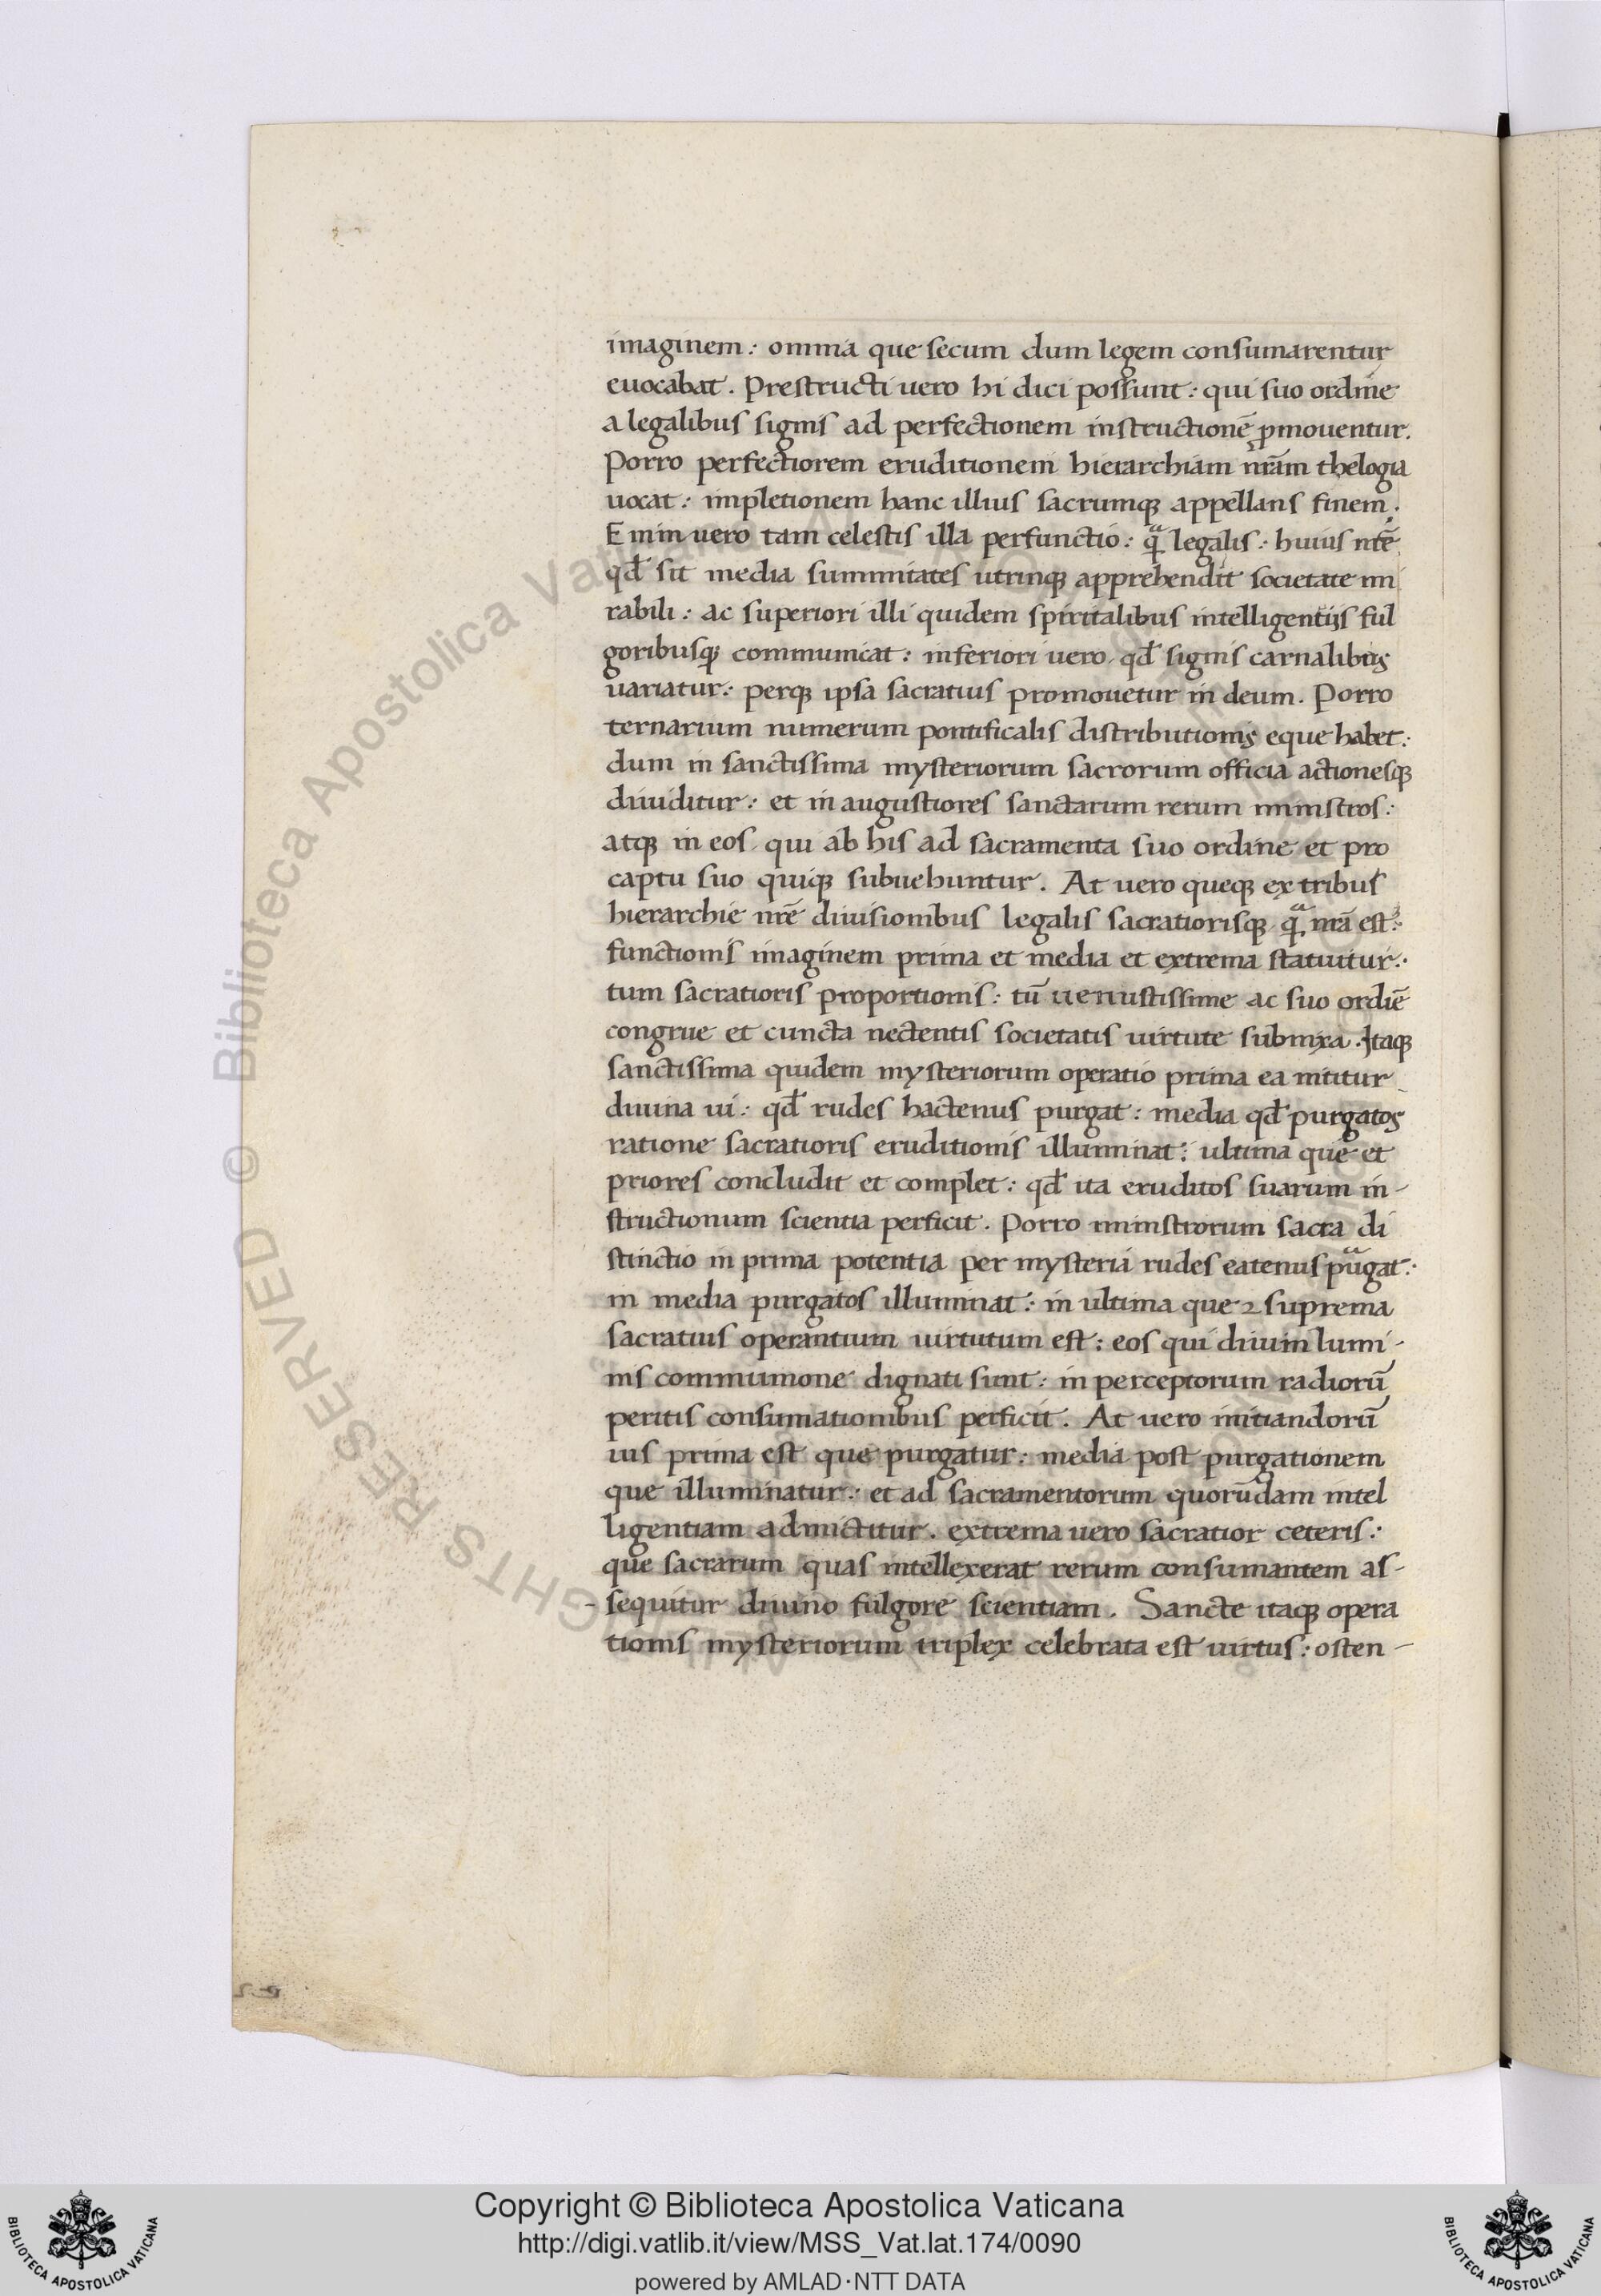 imaginem : omnia que secum dum legem consumarentur
euocabat . Prestructi uero hi dici possunt : qui suo ordine
a legalibus signis ad perfectionem instructionē ꝓmouentur.
Porro perfectiorem eruditionem hierarchiam nr̄am thelogia
uocat : impletionem hanc illius sacrumqꝫ appellans finem .
Enim uero tam celestis illa perfunctio : qͣ legalis : huius nr̄ē
qd̄ sit media summitates utrinqꝫ apprehendit societate mi
rabili : ac superiori illi quidem spiritalibus intelligentijs ful
goribusqꝫ communicat : inferiori uero qd̄ signis carnalibus
uariatur : perqꝫ ipsa sacratius promouetur in deum . Porro
ternarium numerum pontificalis distributionis eque habet :
dum in sanctissima mysteriorum sacrorum officia actionesqꝫ
diuiditur : et in augustiores sanctarum rerum ministros :
atqꝫ in eos qui ab his ad sacramenta suo ordine et pro
captu suo quiqꝫ subuehuntur . At uero queqꝫ ex tribus
hierarchie nr̄e diuisionibus legalis sacratiorisqꝫ qͣ nr̄a est :
functionis imaginem prima et media et extrema statuitur :
tum sacratioris proportionis : tū uenustissime ac suo ordiē
congrue et cuncta nectentis societatis uirtute subnixa . Itaqꝫ
sanctissima quidem mysteriorum operatio prima ea nititur
diuina ui : qd̄ rudes hactenus purgat : media qd̄ purgatos
ratione sacratioris eruditionis illuminat : ultima que et
priores concludit et complet : qd̄ ita eruditos suarum in-
structionum scientia perficit . Porro ministrorum sacra di
stinctio in prima potentia per mysteria rudes eatenus purgat :
in media purgatos illuminat : in ultima que ⁊ suprema
sacratius operantium uirtutum est : eos qui diuini lumi-
nis communione dignati sunt : in perceptorum radiorū
peritis consumationibus perficit . At uero initiandorū
uis prima est que purgatur : media post purgationem
que illuminatur : et ad sacramentorum quorūdam intel
ligentiam admictitur . extrema uero sacratior ceteris :
que sacrarum quas intellexerat rerum consumantem as-
sequitur diuino fulgore scientiam . Sancte itaqꝫ opera
tionis mysteriorum triplex celebrata est uirtus : osten-
© Biblioteca Apostolica Vaticana
RIGHTS RESERVED
Copyright © Biblioteca Apostolica Vaticana
http://digi.vatlib.it/view/MSS_Vat.lat.174/0090
powered by AMLAD·NTT DATA
BIBLIOTECA APOSTOLICA VATICANA
BIBLIOTECA APOSTOLICA VATICANA